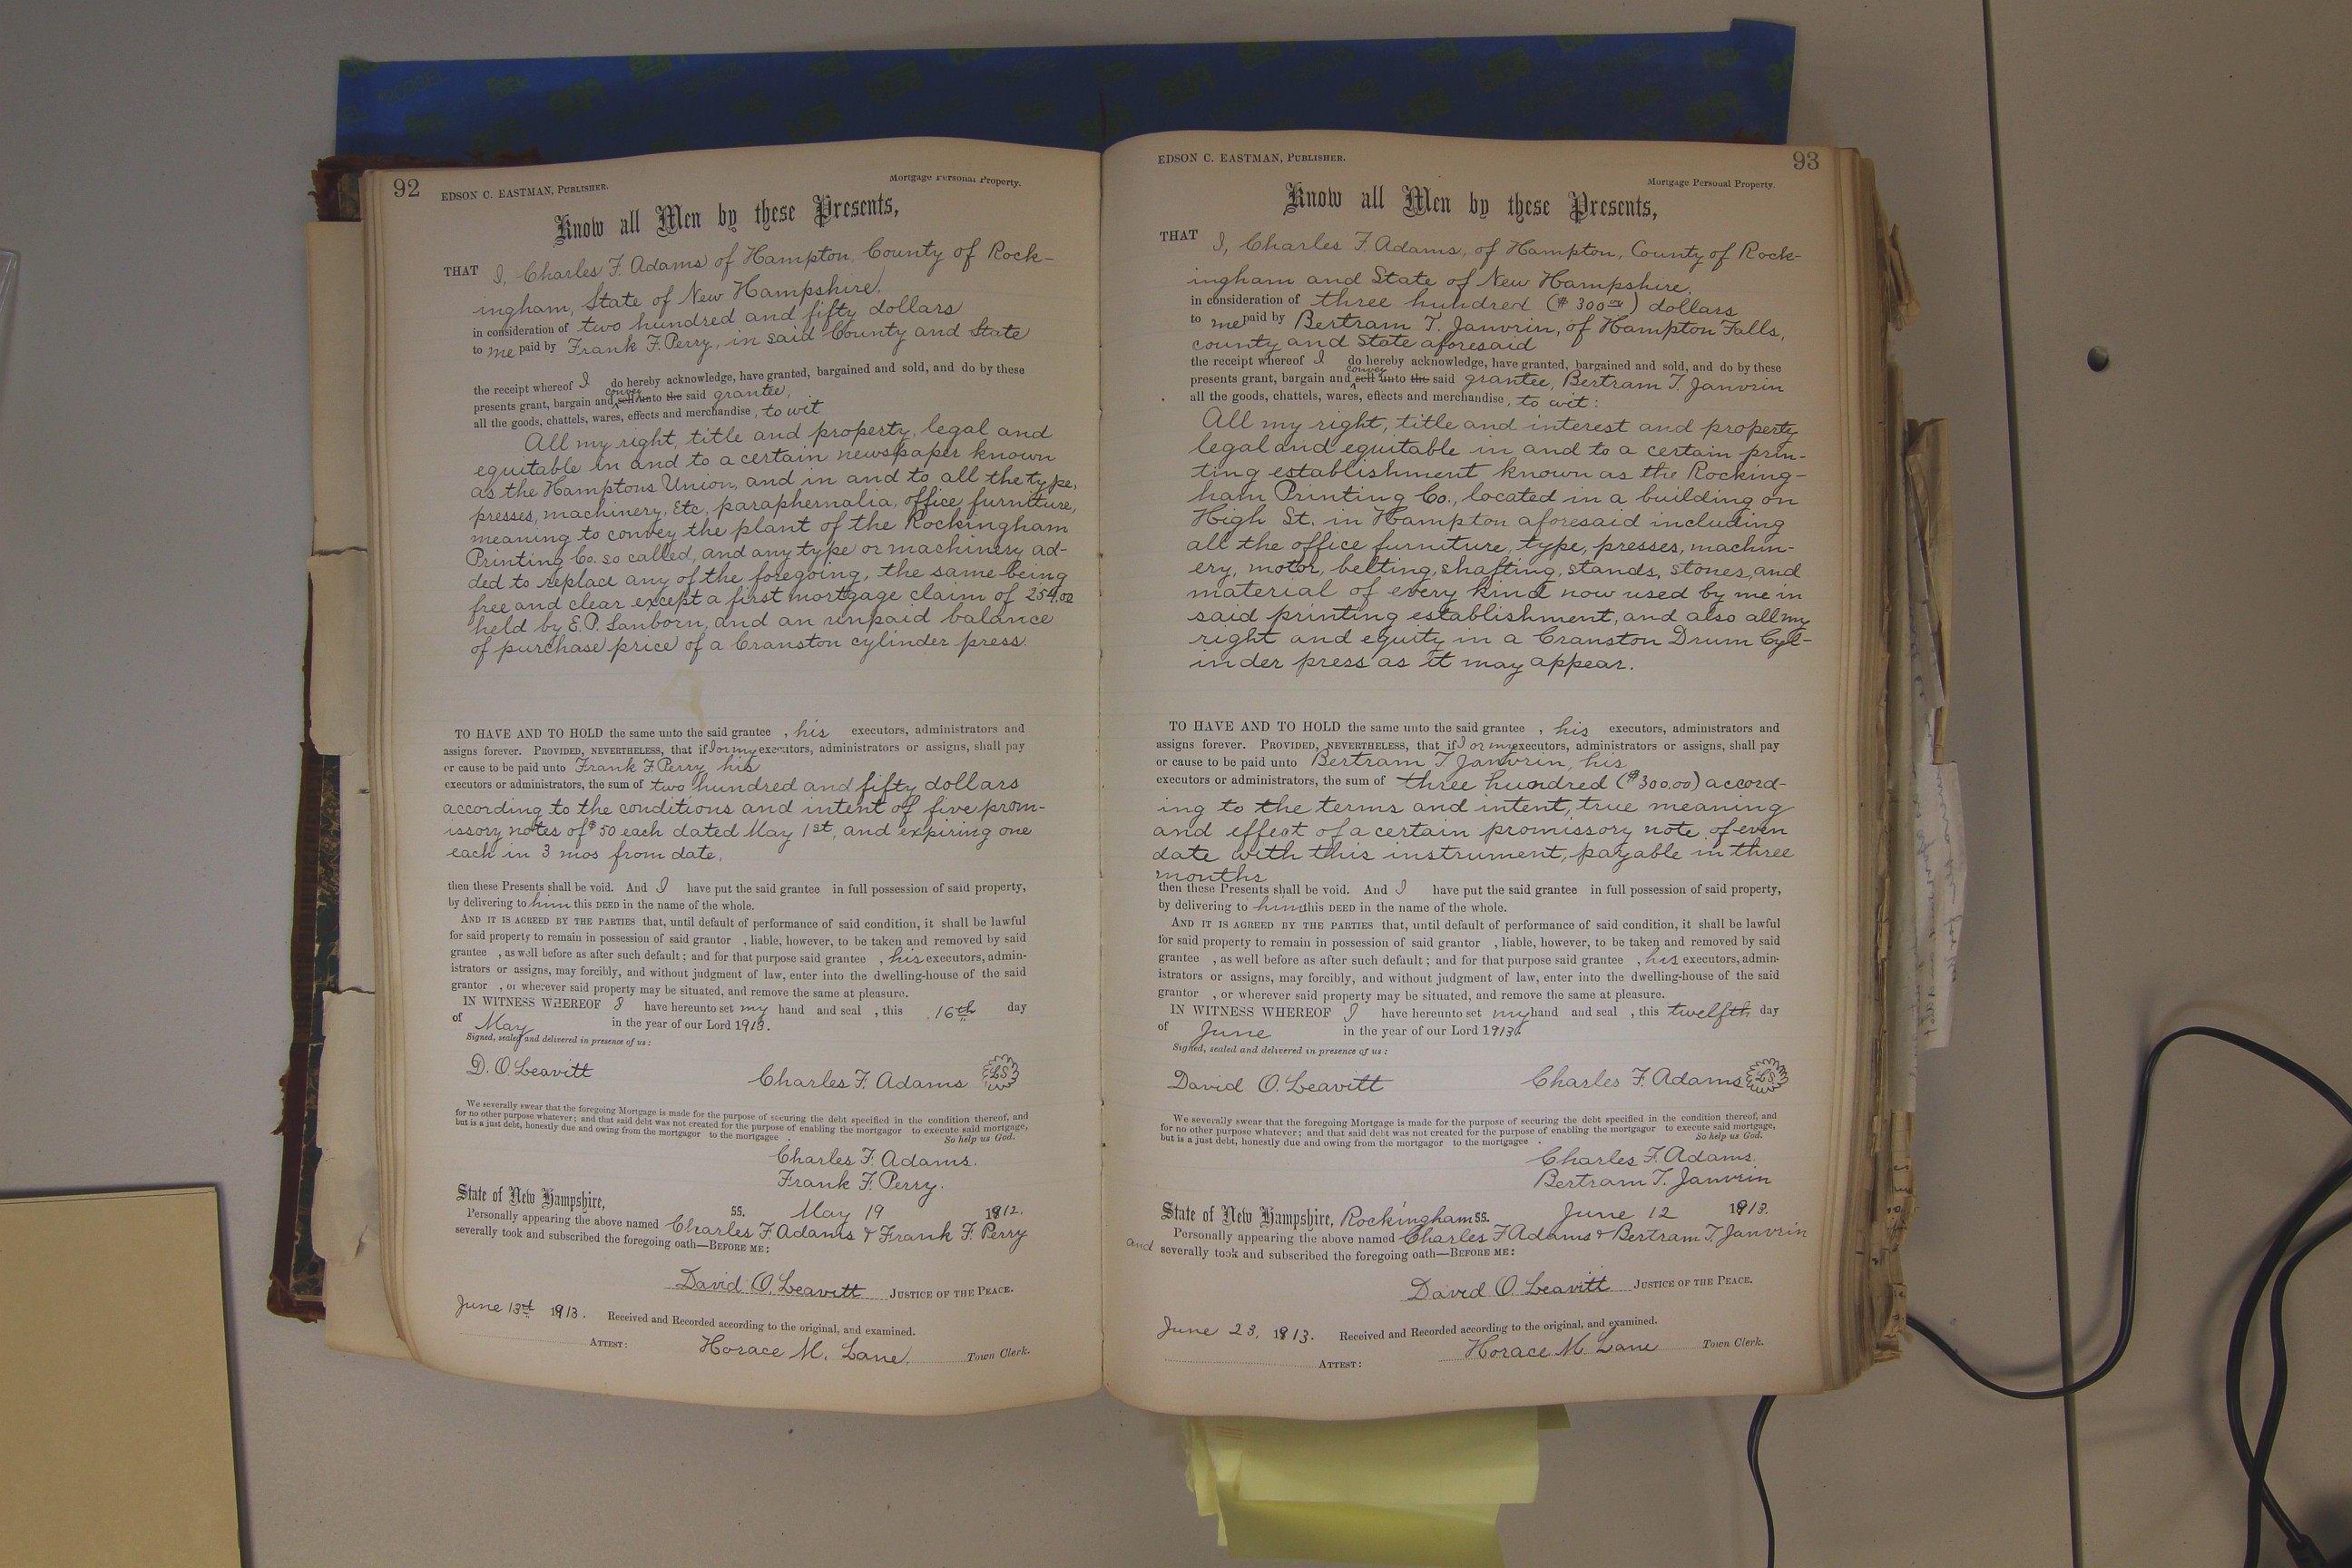 92
EDSON C. EASTMAN, PUBLISHER.
Mortgage Personal Property.
Know all Men by these Presents,
THAT I, Charles F. Adams of Hampton, County of Rock-
ingham, State of New Hampshire,
in consideration of two hundred and fifty dollars
to me paid by Frank F. Perry, in said County and State
the receipt whereof I do hereby acknowledge, have granted, bargained and sold, and do by these
convey
presents grant, bargain and sell unto the said grantee,
all the goods, chattels, wares, effects and merchandise, to wit
All my right, title and property, legal and
equitable in and to a certain newspaper known
as the Hamptons Union, and in and to all the type,
presses, machinery, Etc, paraphernalia, office furniture,
meaning to convey the plant of the Rockingham
Printing Co. so called, and any type or machinery ad-
ded to replace any of the foregoing, the same being
free and clear except a first mortgage claim of
held by E. P. Sanborn, and an unpaid balance
of purchase price of a Cranston cylinder press.
TO HAVE AND TO HOLD the same unto the said grantee , his executors, administrators and
assigns forever. PROVIDED, NEVERTHELESS, that if I or my executors, administrators or assigns, shall pay
or cause to be paid unto Frank F. Perry, his
executors or administrators, the sum of two hundred and fifty dollars
according to the conditions and intent of five prom-
issory notes of $50 each dated May 1st, and expiring one
each in 3 mos from date,
then these Presents shall be void. And I have put the said grantee in full possession of said property,
by delivering to him this DEED in the name of the whole.
AND IT IS AGREED BY THE PARTIES that, until default of performance of said condition, it shall be lawful
for said property to remain in possession of said grantor , liable, however, to be taken and removed by said
grantee , as well before as after such default; and for that purpose said grantee , his executors, admin-
istrators or assigns, may forcibly, and without judgment of law, enter into the dwelling-house of the said
grantor , or wherever said property may be situated, and remove the same at pleasure.
IN WITNESS WHEREOF I have hereunto set my hand and seal , this 16th day
of May in the year of our Lord 1913.
Signed, sealed and delivered in presence of us:
D. O. Leavitt Charles F. Adams LS
We severally swear that the foregoing Mortgage is made for the purpose of securing the debt specified in the condition thereof, and
for no other purpose whatever; and that said debt was not created for the purpose of enabling the mortgagor to execute said mortgage,
but is a just debt, honestly due and owing from the mortgagor to the mortgagee . So help us God.
Charles F. Adams.
Frank F. Perry.
State of New Hampshire, ss. May 19 1912.
Personally appearing the above named Charles F. Adams & Frank F. Perry
severally took and subscribed the foregoing oath—BEFORE ME:
David O. Leavitt JUSTICE OF THE PEACE.
June 13rd 1913. Received and Recorded according to the original, and examined.
ATTEST: Horace M. Lane, Town Clerk.
EDSON C. EASTMAN, PUBLISHER.
93
Mortgage Personal Property.
Know all Men by these Presents,
THAT I, Charles F. Adams, of Hampton, County of Rock-
ingham and State of New Hampshire,
in consideration of three hundred ($300 00/xx) dollars
to me paid by Bertram T. Janvrin, of Hampton Falls,
county and State aforesaid
the receipt whereof I do hereby acknowledge, have granted, bargained and sold, and do by these
convey
presents grant, bargain and sell unto the said grantee, Bertram T. Janvrin
all the goods, chattels, wares, effects and merchandise, to wit:
All my right, title and interest and property
legal and equitable in and to a certain prin-
ting establishment known as the Rocking-
ham Printing Co., located in a building on
High St. in Hampton aforesaid including
all the office furniture, type, presses, machin-
ery, motor, belting, shafting, stands, stones, and
material of every kind now used by me in
said printing establishment, and also all my
right and equity in a Cranston Drum Cyl-
inder press as it may appear.
TO HAVE AND TO HOLD the same unto the said grantee , his executors, administrators and
assigns forever. PROVIDED, NEVERTHELESS, that if I or my executors, administrators or assigns, shall pay
or cause to be paid unto Bertram T. Janvrin, his
executors or administrators, the sum of three hundred ($300.00) accord-
ing to the terms and intent, true meaning
and effect of a certain promissory note of even
date with this instrument, payable in three
months
then these Presents shall be void. And I have put the said grantee in full possession of said property,
by delivering to him this DEED in the name of the whole.
AND IT IS AGREED BY THE PARTIES that, until default of performance of said condition, it shall be lawful
for said property to remain in possession of said grantor , liable, however, to be taken and removed by said
grantee , as well before as after such default; and for that purpose said grantee , his executors, admin-
istrators or assigns, may forcibly, and without judgment of law, enter into the dwelling-house of the said
grantor , or wherever said property may be situated, and remove the same at pleasure.
IN WITNESS WHEREOF I have hereunto set my hand and seal , this twelfth day
of June in the year of our Lord 1913.
Signed, sealed and delivered in presence of us:
David O. Leavitt Charles F. Adams LS
We severally swear that the foregoing Mortgage is made for the purpose of securing the debt specified in the condition thereof, and
for no other purpose whatever; and that said debt was not created for the purpose of enabling the mortgagor to execute said mortgage,
but is a just debt, honestly due and owing from the mortgagor to the mortgagee . So help us God.
Charles F. Adams.
Bertram T. Janvrin
State of New Hampshire, Rockingham ss. June 12 1913.
Personally appearing the above named Charles F. Adams & Bertram T. Janvrin
and severally took and subscribed the foregoing oath—BEFORE ME:
David O. Leavitt JUSTICE OF THE PEACE.
June 23, 1913. Received and Recorded according to the original, and examined.
ATTEST: Horace M. Lane Town Clerk.